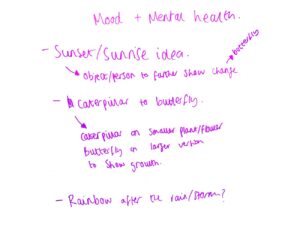 Mood + Mental health.
- Sunset/Sunrise idea.
butterfly
object/person to further show change
- Caterpillar to butterfly.
Caterpillar on smaller plant/flower
Butterfly on larger version
to show growth.
- Rainbow after the rain/storm?